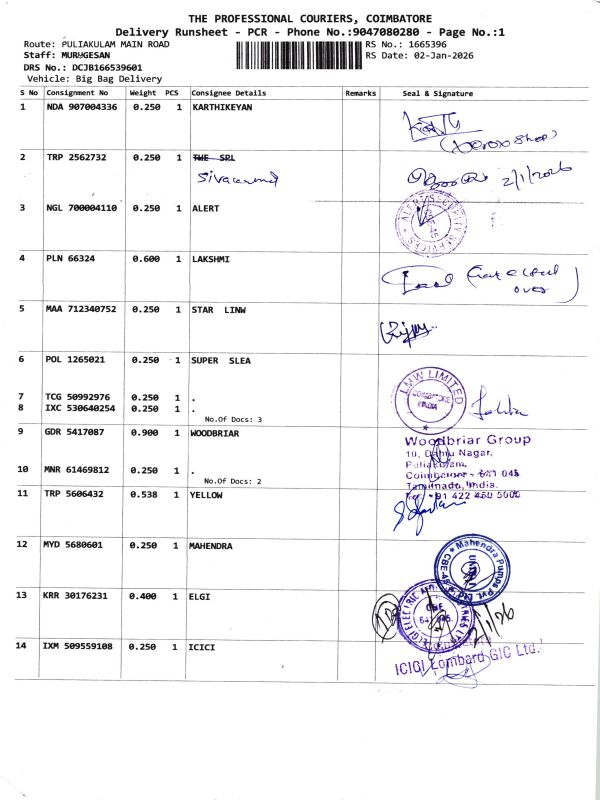 THE PROFESSIONAL COURIERS, COIMBATORE
Delivery Runsheet - PCR - Phone No.:9047080280 - Page No.:1
Route: PULIAKULAM MAIN ROAD RS No.: 1665396
Staff: MURUGESAN RS Date: 02-Jan-2026
DRS No.: DCJB166539601
Vehicle: Big Bag Delivery
S No Consignment No Weight PCS Consignee Details Remarks Seal & Signature
1 NDA 907004336 0.250 1 KARTHIKEYAN
(xerox shop)
2 TRP 2562732 0.250 1 THE SRL
2/1/2026
3 NGL 700004110 0.250 1 ALERT
ALERT SECURITY SERVICES
4 PLN 66324 0.600 1 LAKSHMI
over)
5 MAA 712340752 0.250 1 STAR LINW
6 POL 1265021 0.250 1 SUPER SLEA
LMW LIMITED
COIMBATORE
INDIA
7 TCG 50992976 0.250 1 .
8 IXC 530640254 0.250 1 .
No.Of Docs: 3
9 GDR 5417087 0.900 1 WOODBRIAR
Woodbriar Group
Nagar,
Puliakulam,
Coimbatore - 641 045
Tamilnadu, India.
+91 422 450 5000
10 MNR 61469812 0.250 1 .
No.Of Docs: 2
11 TRP 5606432 0.538 1 YELLOW
12 MYD 5680601 0.250 1 MAHENDRA
Mahendra Pumps Pvt. Ltd
CBE-45
13 KRR 30176231 0.400 1 ELGI
ELGI ELECTRIC
CBE
2/1/26
14 IXM 509559108 0.250 1 ICICI
ICICI Lombard GIC Ltd.